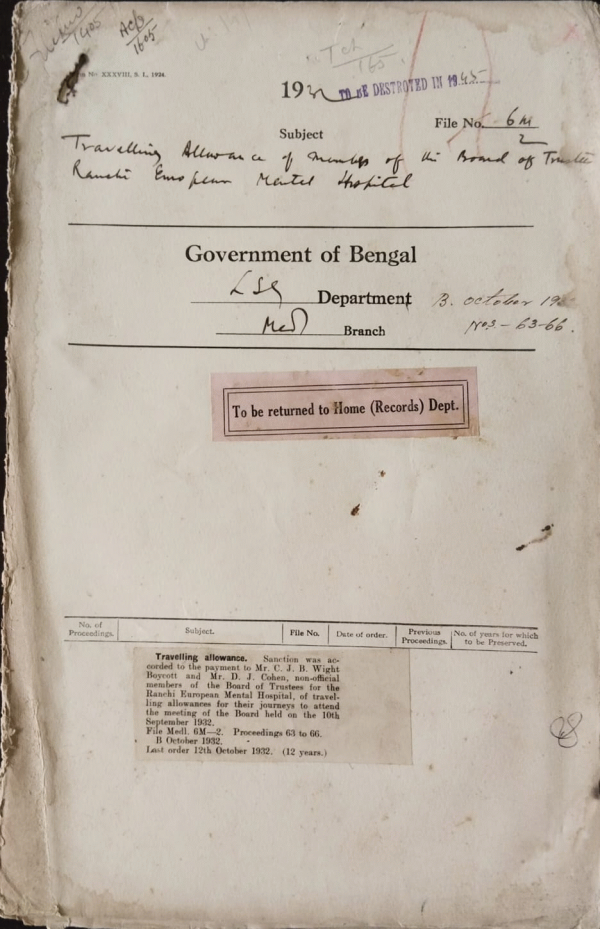 1405
Acp
1605
No. XXXVIII, S. I., 1924.
1932 TO BE DESTROYED IN 1945
File No. 6M
2
Subject
Travelling Allowance of members of the Board of Trustees
Ranchi European Mental Hospital
Government of Bengal
LSG Department B. October 19
Medl Branch Nos. - 63-66.
To be returned to Home (Records) Dept.
No. of Proceedings. Subject. File No. Date of order. Previous Proceedings. No. of years for which to be Preserved.
Travelling allowance. Sanction was ac-
corded to the payment to Mr. C. J. B. Wight
Boycott and Mr. D. J. Cohen, non-official
members of the Board of Trustees for the
Ranchi European Mental Hospital, of travel-
ling allowances for their journeys to attend
the meeting of the Board held on the 10th
September 1932.
File Medl. 6M—2. Proceedings 63 to 66.
B October 1932.
Last order 12th October 1932. (12 years.)